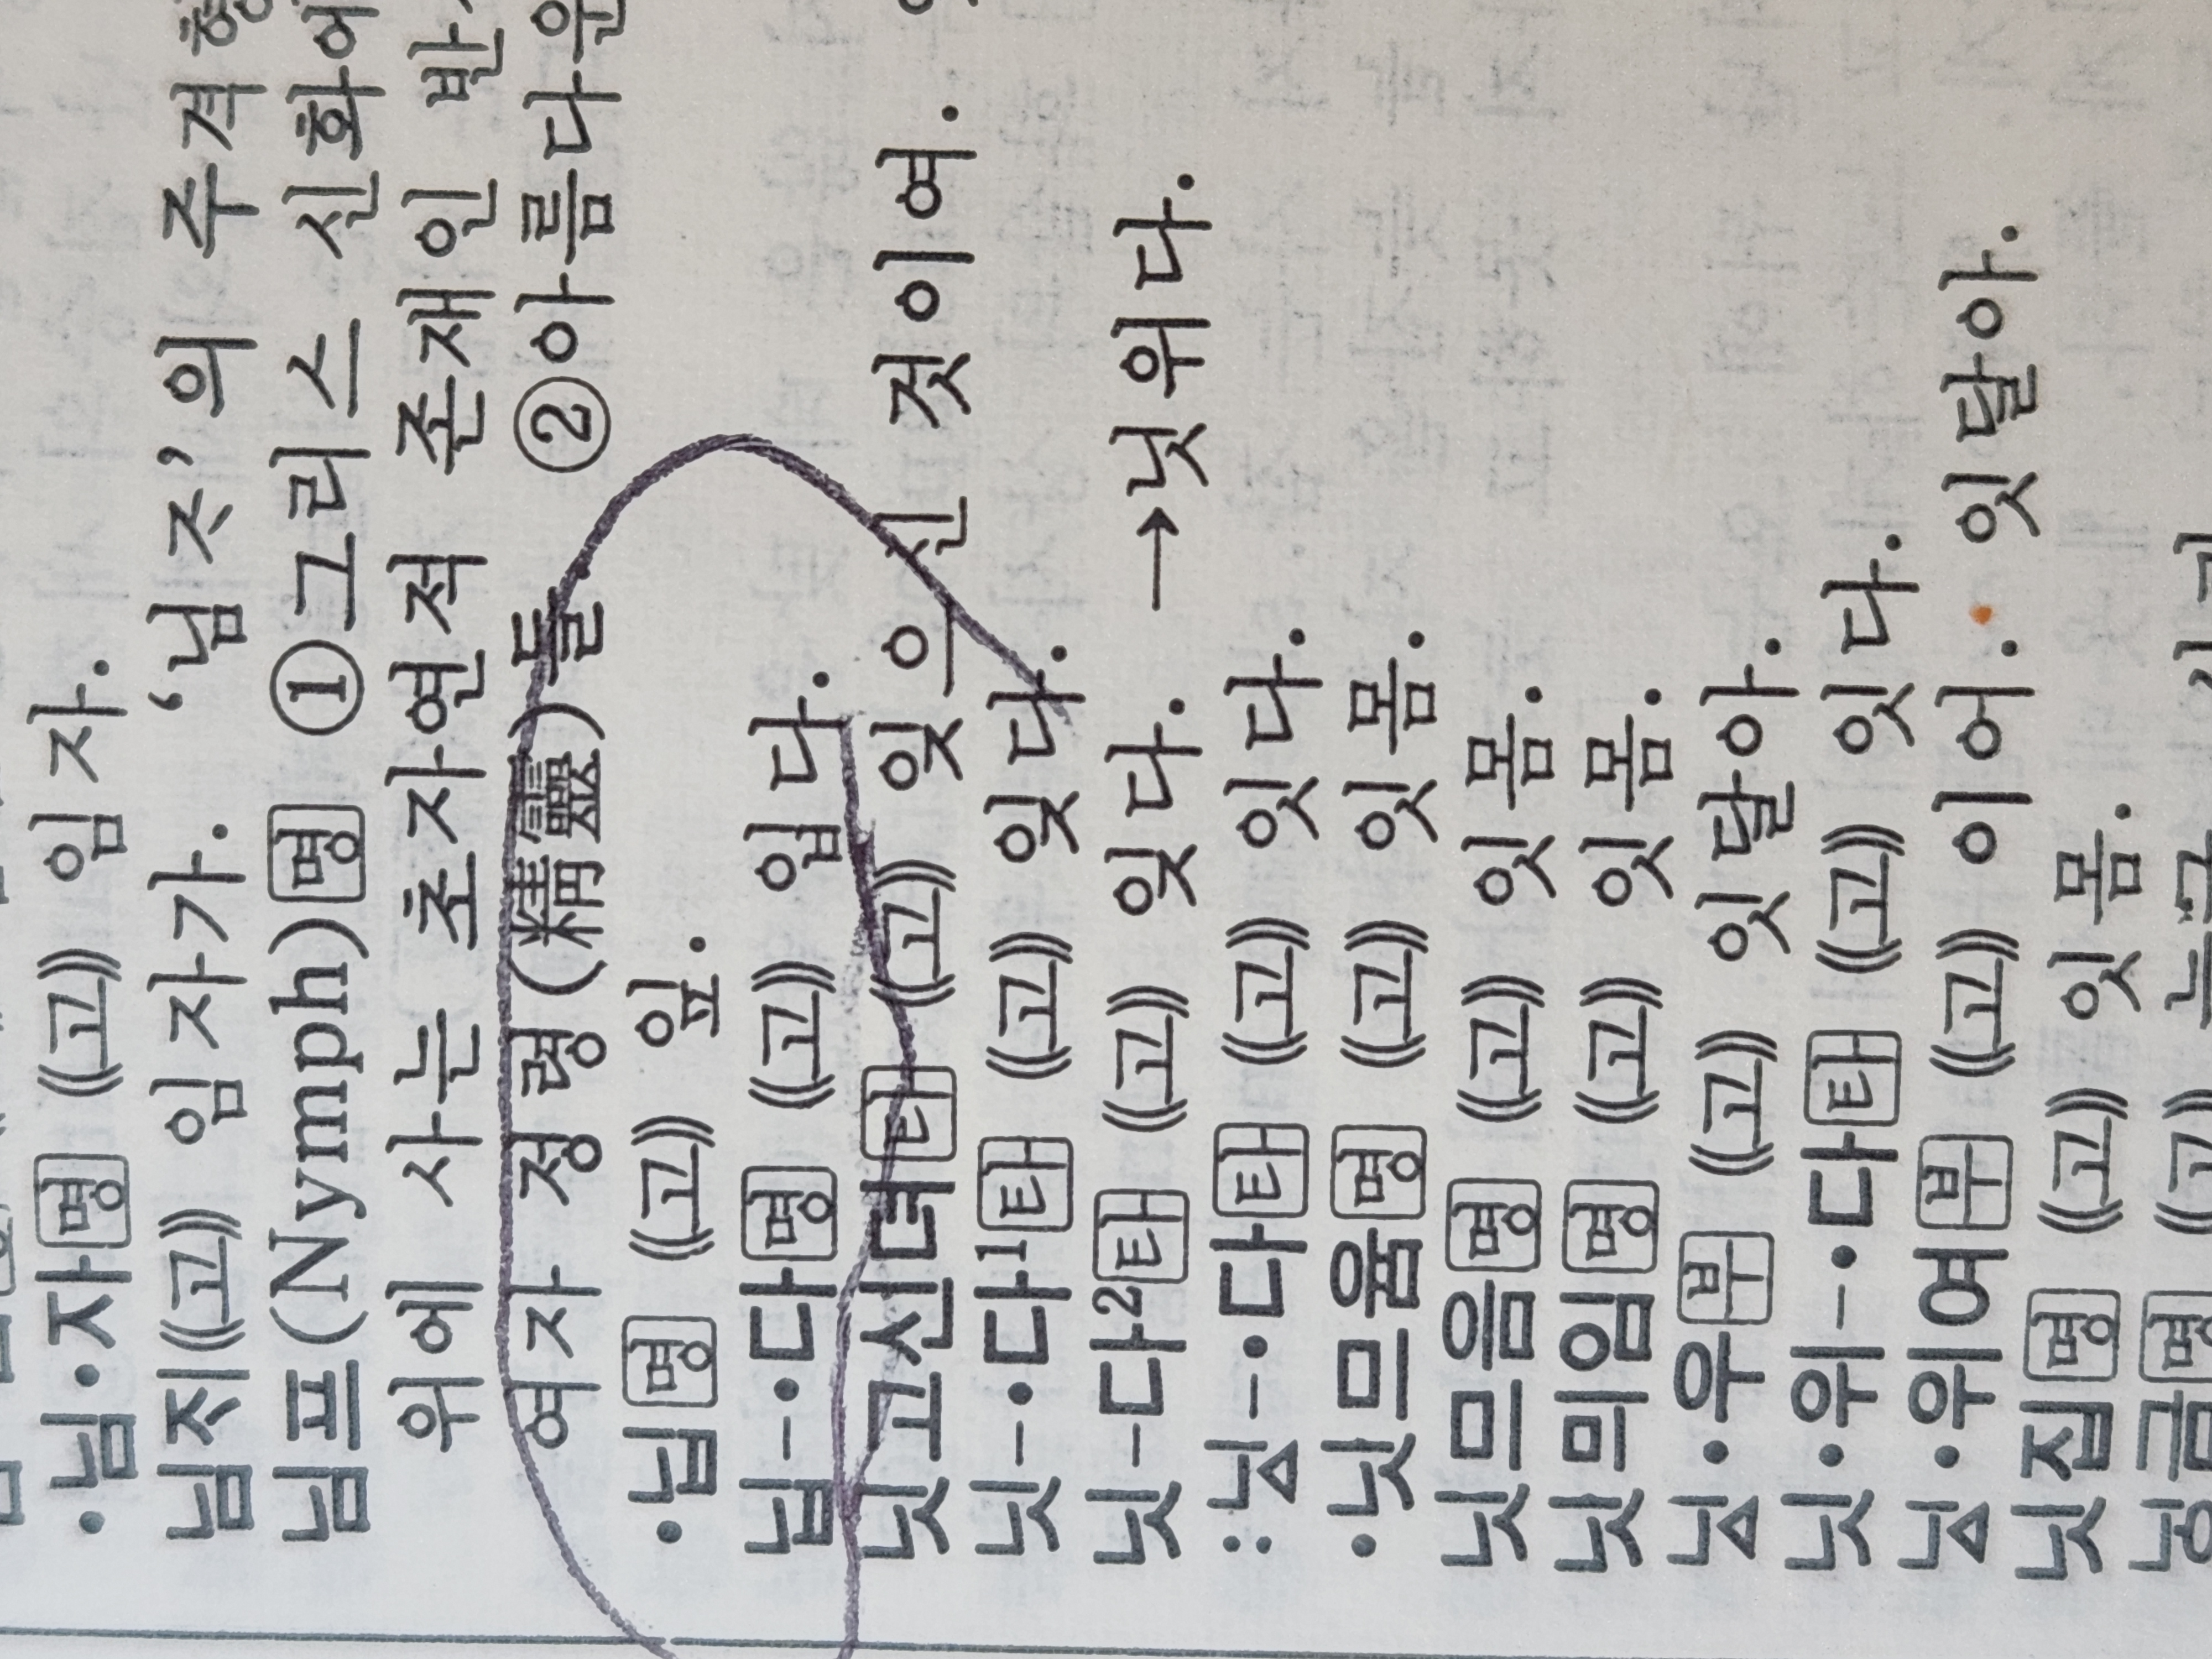 ·님·자[명] 《고》 임자.
님지《고》 임자가. ‘님ᄌᆞ’의 주격
님프(Nymph)[명] ①그리스 신화에
위에 사는 초자연적 존재인 반
여자 정령(精靈)들. ②아름다운
·닢[명] 《고》 잎.
닙-·다[명] 《고》 입다.
닛고신뎌[타] 《고》 잊으신 것이여.
닛-·다¹[타] 《고》 잊다.
닛-다²[타] 《고》 잊다. →닛위다.
:닔-·다[타] 《고》 잇다.
·닛므윰[명] 《고》 잇몸.
닛므음[명] 《고》 잇몸.
닛믜임[명] 《고》 잇몸.
닔·우[부] 《고》 잇달아.
닛·위-·다[타] 《고》 잇다.
닔·위여[부] 《고》 이어. 잇달아.
닛집[명] 《고》 잇몸.